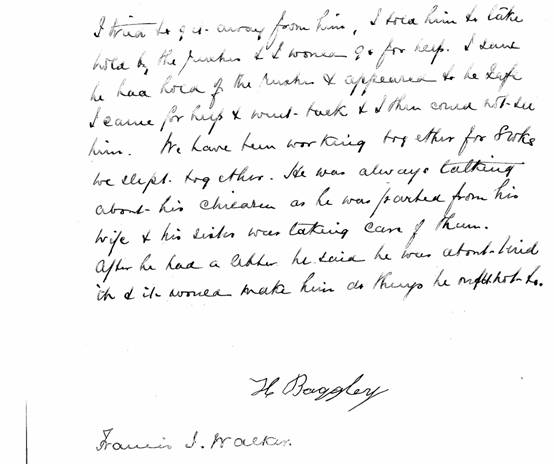 I tried to get away from him, I told him to take
hold by the rushes & I would go for help. I saw
he had hold of the rushes & appeared to be safe
I came for help & went back & I then could not see
him. We have been working together for 8 wks
we slept together. He was always talking
about his children as he was parted from his
wife & his sister was taking care of them.
After he had a letter he said he was about tired
it & it would make him do things he ought not to.
H Baggley
Francis J. Walker.